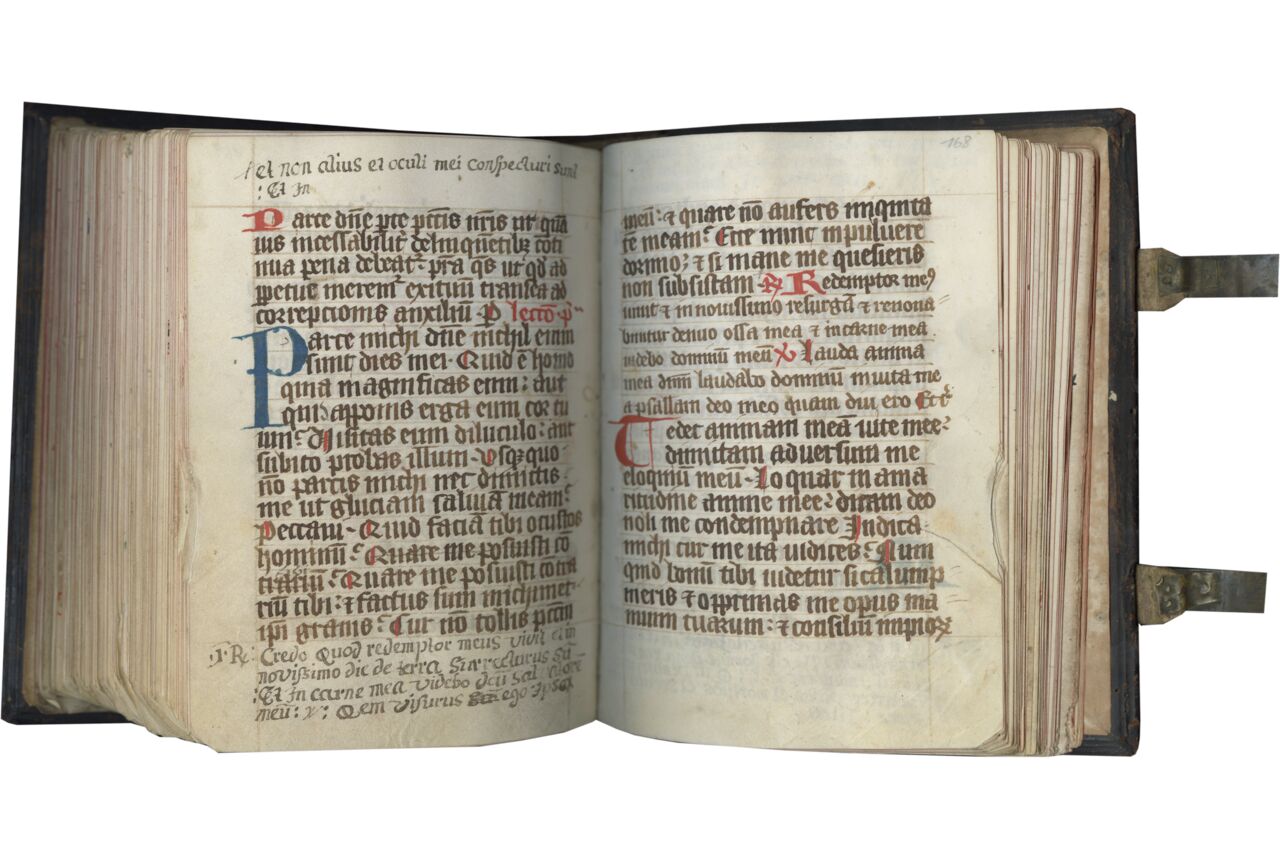 et non alius et oculi mei conspecturi sunt
: Et In
Parce dn̄e pc̄e pctīs nr̄is ut quā
uis incessabilit̄ delinquētibꝫ cōti
nua pena debeat᷑: pr̄a q̄s ut qd̄ ad
ꝑpetue meren᷑ exitiuū transea ad
correpcionis auxiliū ꝑ lecc̄o p̄ᵃ
Parce michi dn̄e nichil enim
sunt dies mei. Quid ē homo
quia magnificas eum: aut
quid apponis erga eum cor tu
um: Uisitas eum diluculo: aut
subito probas illum. Usqꝫ quo
nō parcis michi nec dimittis
me ut gluciam saliuā meam:
Peccaui. Quid faciā tibi o custos
hominū: Quare me posuisti cō
trariū: Quare me posuisti contra
riū tibi: ⁊ factus sum michimet
ipi grauis: Cur nō tollis pctm̄
.J. R: Credo Quod redemptor meus vivit et in
novissimo die de terra Surrecturus sū
: Et In carne mea videbo deū Salvatorē
meū: ℣: Qem visurus sum ego Ipse
168
meū: ⁊ quare nō aufers iniquita
tē meam: Ecce nunc in puluere
dormio; ⁊ si mane me quesieris
non subsistam ℞ Redemptor meꝰ
uiuit ⁊ in nouissimo resurgā ⁊ renoua
buntur denuo ossa mea ⁊ in carne mea
uidebo dominū meū ℣ Lauda anima
mea dnm̄ laudabo dominū in uita me
a psallam deo meo quam diu ero Et c̄
Tedet animam meā uite mee:
dimittam aduersum me
eloquiū meū. Loquar in ama
ritudine anime mee: dicam deo
noli me condempnare Indica
michi cur me ita iudices: Num
quid bonū tibi uidetur si calump
nieris ⁊ opprimas me opus ma
nuum tuarum: ⁊ consiliū impioꝝ